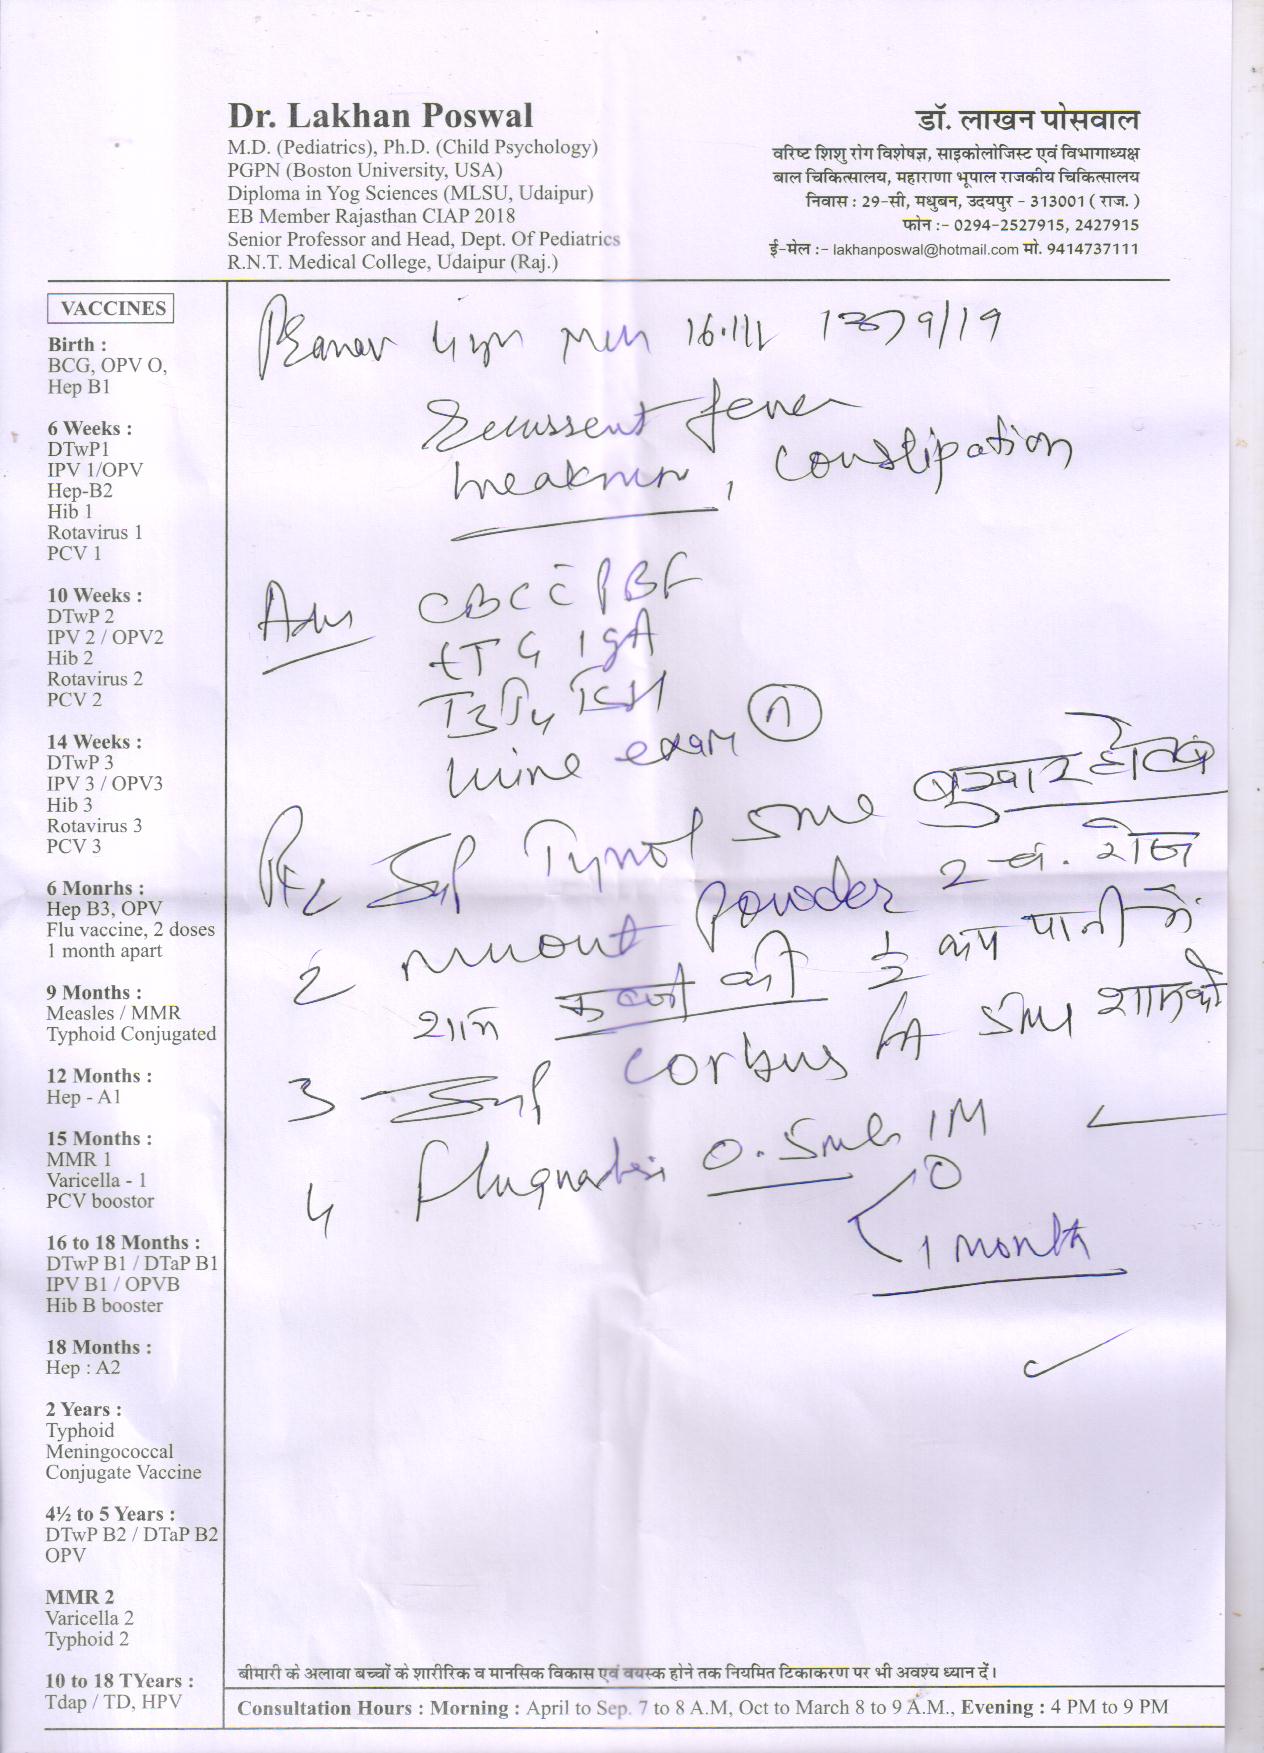 Dr. Lakhan Poswal
M.D. (Pediatrics), Ph.D. (Child Psychology)
PGPN (Boston University, USA)
Diploma in Yog Sciences (MLSU, Udaipur)
EB Member Rajasthan CIAP 2018
Senior Professor and Head, Dept. Of Pediatrics
R.N.T. Medical College, Udaipur (Raj.)
डॉ. लाखन पोसवाल
वरिष्ट शिशु रोग विशेषज्ञ, साइकोलोजिस्ट एवं विभागाध्यक्ष
बाल चिकित्सालय, महाराणा भूपाल राजकीय चिकित्सालय
निवास : 29-सी, मधुबन, उदयपुर - 313001 ( राज. )
फोन :- 0294-2527915, 2427915
ई-मेल :- lakhanposwal@hotmail.com मो. 9414737111
VACCINES
Birth :
BCG, OPV O,
Hep B1
6 Weeks :
DTwP1
IPV 1/OPV
Hep-B2
Hib 1
Rotavirus 1
PCV 1
10 Weeks :
DTwP 2
IPV 2 / OPV2
Hib 2
Rotavirus 2
PCV 2
14 Weeks :
DTwP 3
IPV 3 / OPV3
Hib 3
Rotavirus 3
PCV 3
6 Monrhs :
Hep B3, OPV
Flu vaccine, 2 doses
1 month apart
9 Months :
Measles / MMR
Typhoid Conjugated
12 Months :
Hep - A1
15 Months :
MMR 1
Varicella - 1
PCV boostor
16 to 18 Months :
DTwP B1 / DTaP B1
IPV B1 / OPVB
Hib B booster
18 Months :
Hep : A2
2 Years :
Typhoid
Meningococcal
Conjugate Vaccine
4½ to 5 Years :
DTwP B2 / DTaP B2
OPV
MMR 2
Varicella 2
Typhoid 2
10 to 18 TYears :
Tdap / TD, HPV
4 9/19
Recurrent fever
weakness, constipation
Adv CBC c̄ PBF
tTG IgA
T3 T4 TSH
urine exam (n)
Rx Syp 5ml बुखार हो तब
2 powder 2 च. रोज
शाम कब्ज की ½ कप पानी में
3 Syp 5ml शाम को
4 0.5ml IM
0
1 month
बीमारी के अलावा बच्चों के शारीरिक व मानसिक विकास एवं वयस्क होने तक नियमित टिकाकरण पर भी अवश्य ध्यान दें।
Consultation Hours : Morning : April to Sep. 7 to 8 A.M, Oct to March 8 to 9 A.M., Evening : 4 PM to 9 PM